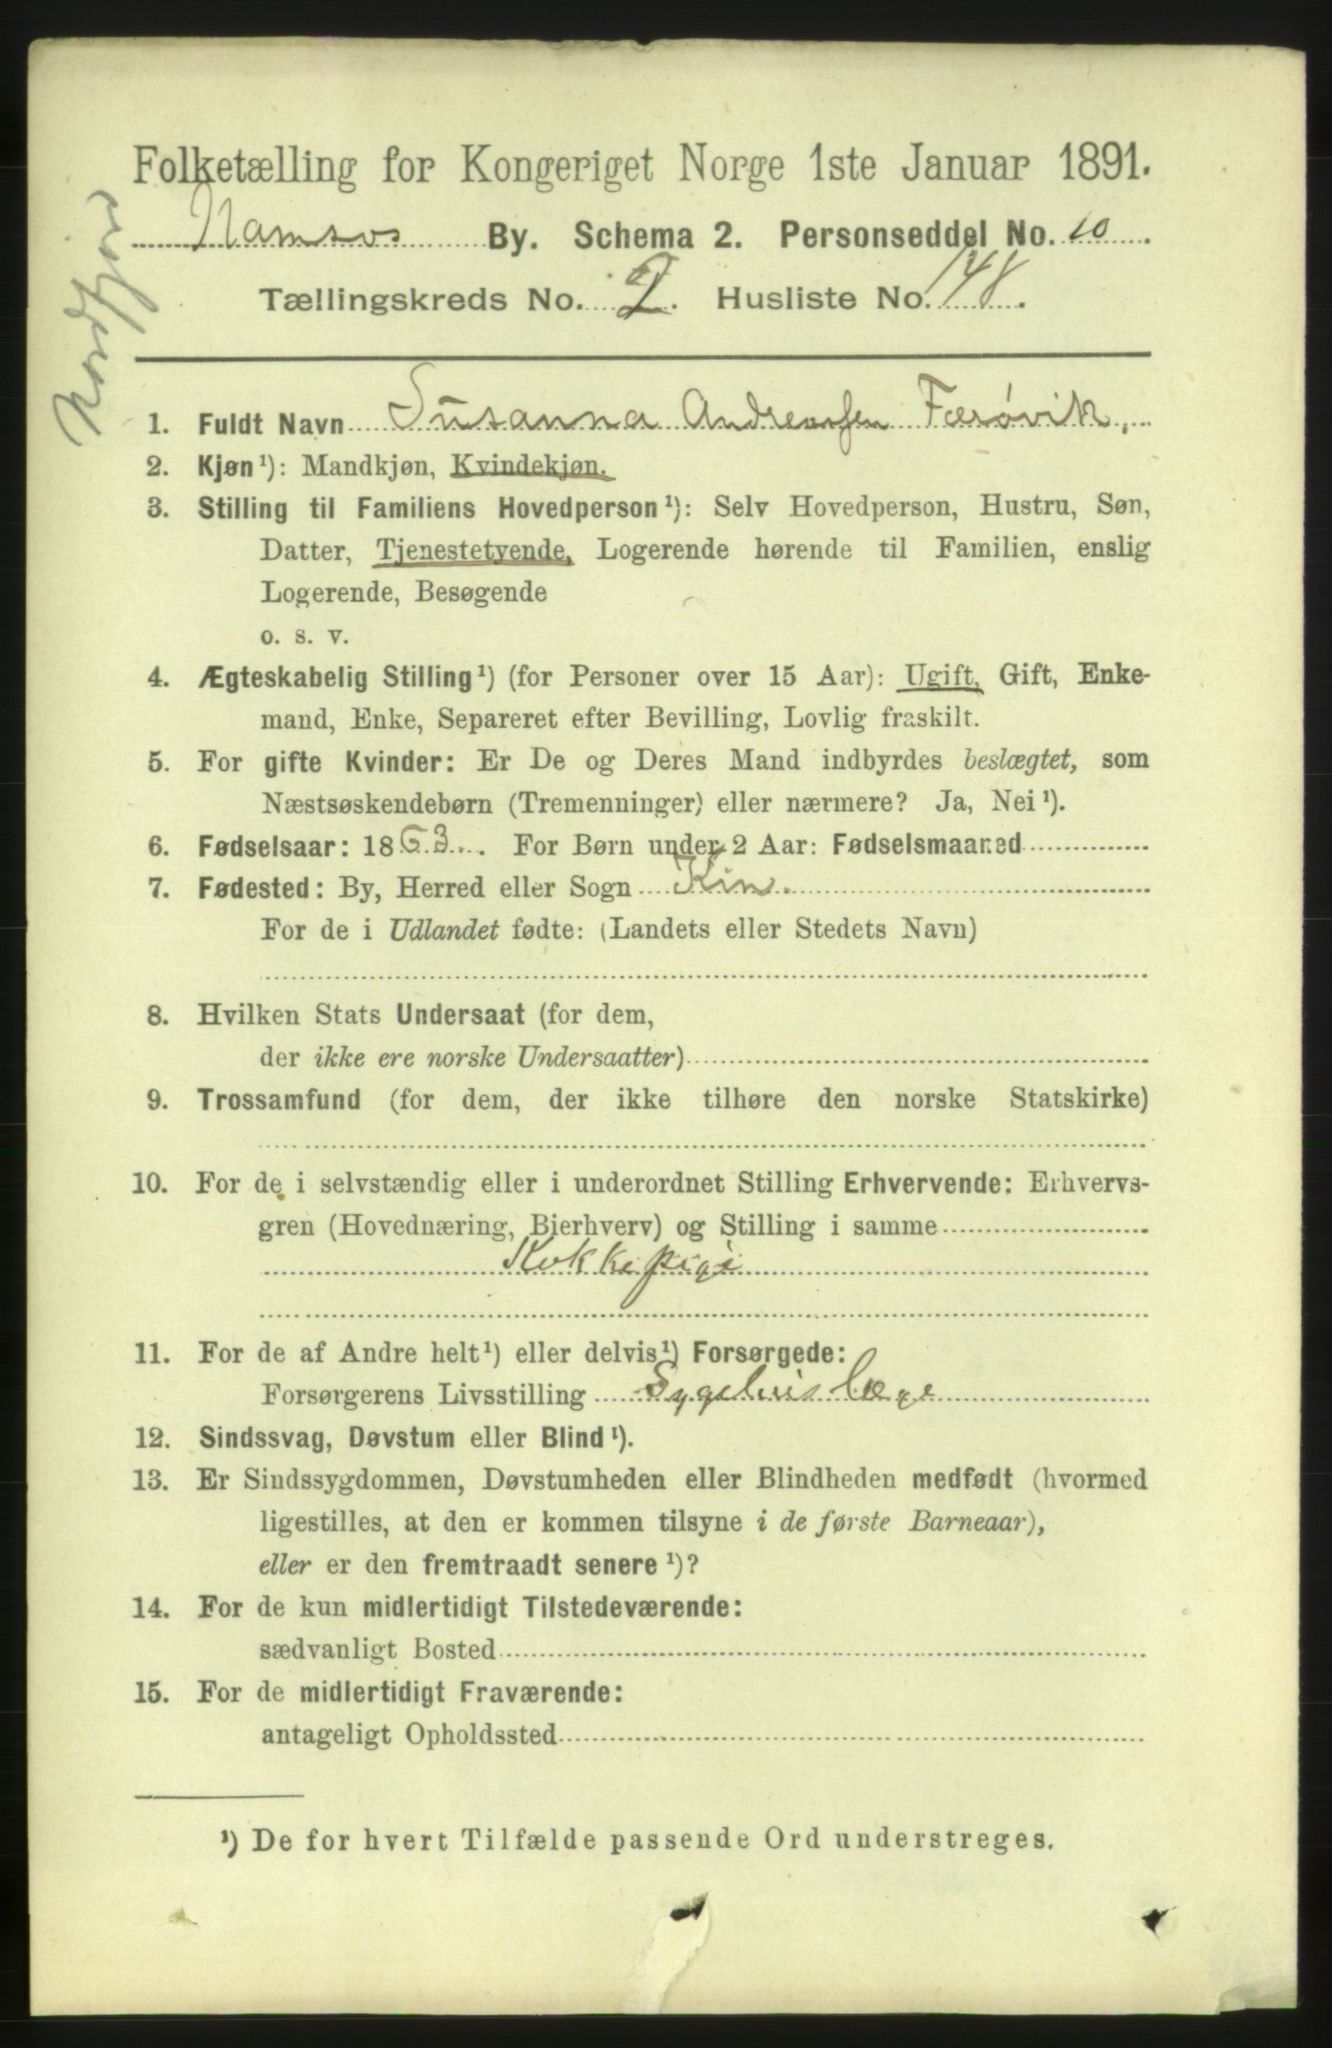 Folketælling for Kongeriget Norge 1ste Januar 1891.
Namsos By. Schema 2. Personseddel No. 10
Tællingskreds No. 2. Husliste No. 148.
Nordfjord
1. Fuldt Navn Susanna Andreasen Færøvik,
2. Kjøn¹): Mandkjøn, Kvindekjøn.
3. Stilling til Familiens Hovedperson¹): Selv Hovedperson, Hustru, Søn,
Datter, Tjenestetyende, Logerende hørende til Familien, enslig
Logerende, Besøgende
o. s. v.
4. Ægteskabelig Stilling¹) (for Personer over 15 Aar): Ugift, Gift, Enke-
mand, Enke, Separeret efter Bevilling, Lovlig fraskilt.
5. For gifte Kvinder: Er De og Deres Mand indbyrdes beslægtet, som
Næstsøskendebørn (Tremenninger) eller nærmere? Ja, Nei¹).
6. Fødselsaar: 1863. For Børn under 2 Aar: Fødselsmaaned
7. Fødested: By, Herred eller Sogn Kin.
For de i Udlandet fødte: (Landets eller Stedets Navn)
8. Hvilken Stats Undersaat (for dem,
der ikke ere norske Undersaatter)
9. Trossamfund (for dem, der ikke tilhøre den norske Statskirke)
10. For de i selvstændig eller i underordnet Stilling Erhvervende: Erhvervs-
gren (Hovednæring, Bierhverv) og Stilling i samme
Kokkepige
11. For de af Andre helt¹) eller delvis¹) Forsørgede:
Forsørgerens Livsstilling Sygehuslæge
12. Sindssvag, Døvstum eller Blind¹).
13. Er Sindssygdommen, Døvstumheden eller Blindheden medfødt (hvormed
ligestilles, at den er kommen tilsyne i de første Barneaar),
eller er den fremtraadt senere¹)?
14. For de kun midlertidigt Tilstedeværende:
sædvanligt Bosted
15. For de midlertidigt Fraværende:
antageligt Opholdssted
¹) De for hvert Tilfælde passende Ord understreges.